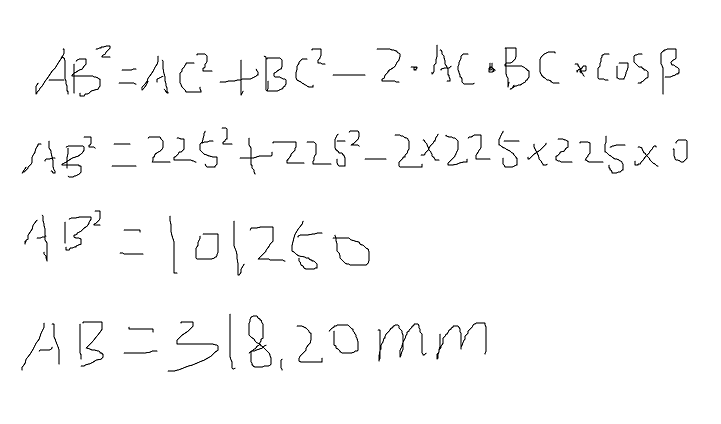 AB² = AC² + BC² - 2 · AC · BC · cos β
AB² = 225² + 225² - 2×225×225×0
AB² = 101250
AB = 318.20 mm